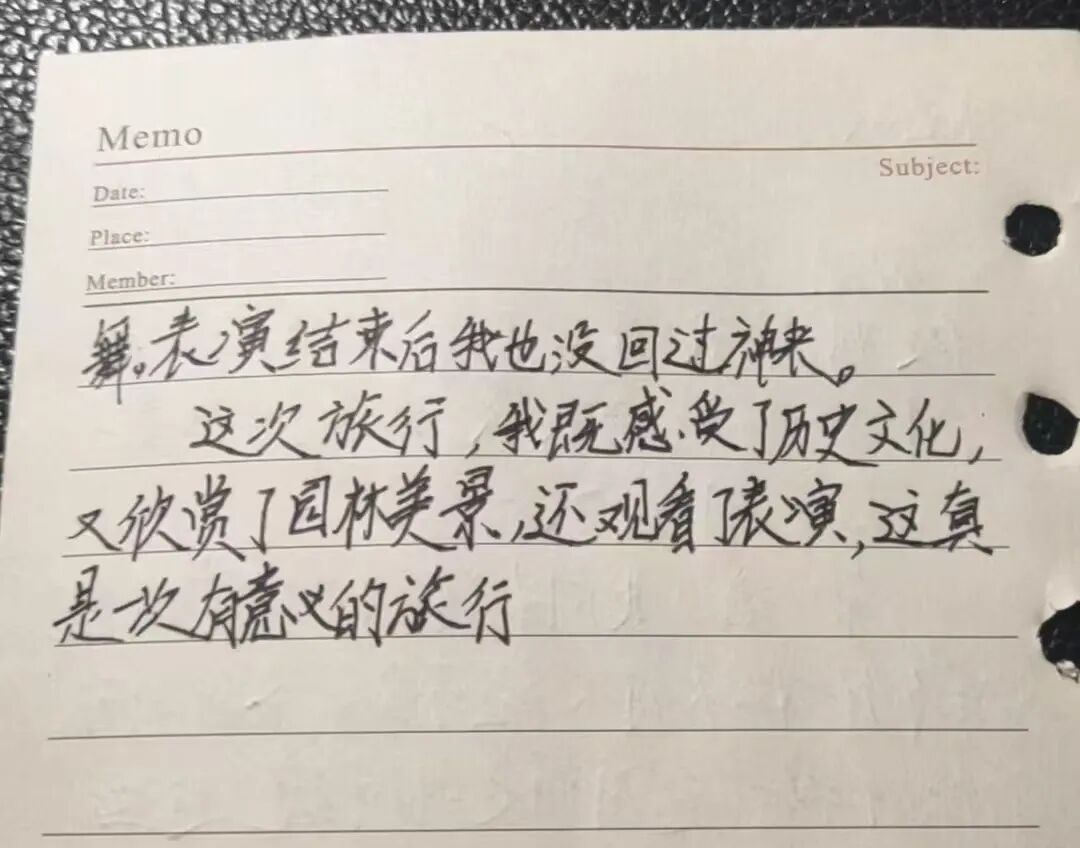 Memo
Subject:
Date:
Place:
Member:
舞。表演结束后我也没回过神来。
这次旅行,我既感受了历史文化,
又欣赏了园林美景,还观看了表演,这真
是一次有意义的旅行